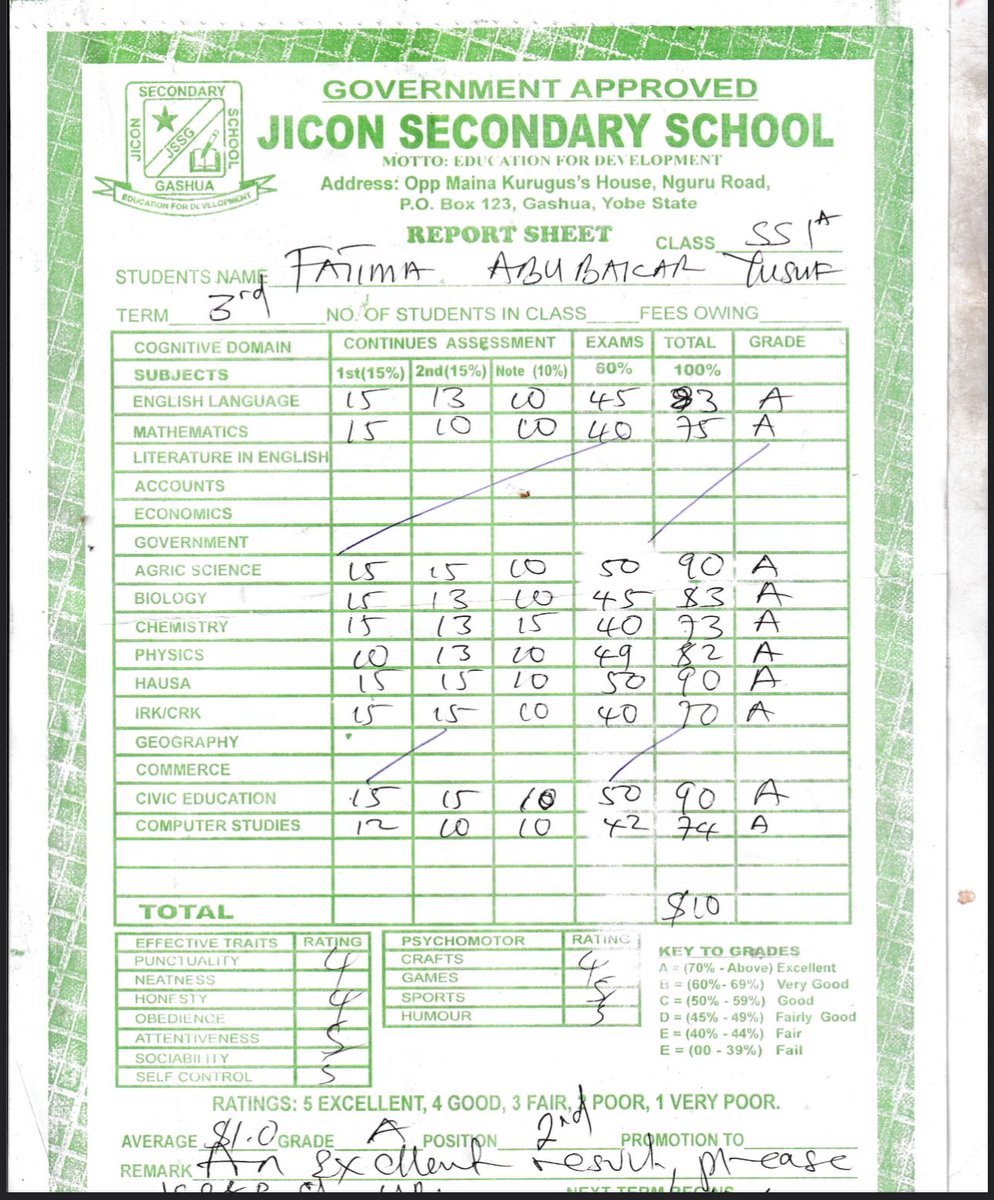 SECONDARY
JICON
JSSG
SCHOOL
GASHUA
EDUCATION FOR DEVELOPMENT
GOVERNMENT APPROVED
JICON SECONDARY SCHOOL
MOTTO: EDUCATION FOR DEVELOPMENT
Address: Opp Maina Kurugus's House, Nguru Road,
P.O. Box 123, Gashua, Yobe State
REPORT SHEET CLASS SS 1A
STUDENTS NAME FATIMA ABUBAKAR YUSUF
TERM 3rd NO. OF STUDENTS IN CLASS FEES OWING
COGNITIVE DOMAIN CONTINUES ASSESSMENT EXAMS TOTAL GRADE
SUBJECTS 1st(15%) 2nd(15%) Note (10%) 60% 100%
ENGLISH LANGUAGE 15 13 10 45 83 A
MATHEMATICS 15 10 10 40 75 A
LITERATURE IN ENGLISH
ACCOUNTS
ECONOMICS
GOVERNMENT
AGRIC SCIENCE 15 15 10 50 90 A
BIOLOGY 15 13 10 45 83 A
CHEMISTRY 15 13 15 40 73 A
PHYSICS 10 13 10 49 82 A
HAUSA 15 15 10 50 90 A
IRK/CRK 15 15 10 40 70 A
GEOGRAPHY
COMMERCE
CIVIC EDUCATION 15 15 10 50 90 A
COMPUTER STUDIES 12 10 10 42 74 A
TOTAL 810
EFFECTIVE TRAITS RATING
PUNCTUALITY 4
NEATNESS
HONESTY 4
OBEDIENCE
ATTENTIVENESS 5
SOCIABILITY
SELF CONTROL 5
PSYCHOMOTOR RATING
CRAFTS 4
GAMES
SPORTS 5
HUMOUR 5
KEY TO GRADES
A = (70% - Above) Excellent
B = (60%- 69%) Very Good
C = (50% - 59%) Good
D = (45% - 49%) Fairly Good
E = (40% - 44%) Fair
E = (00 - 39%) Fail
RATINGS: 5 EXCELLENT, 4 GOOD, 3 FAIR, POOR, 1 VERY POOR.
AVERAGE 81.0 GRADE A POSITION 2nd PROMOTION TO
REMARK An Excellent result, please
NEXT TERM BEGINS